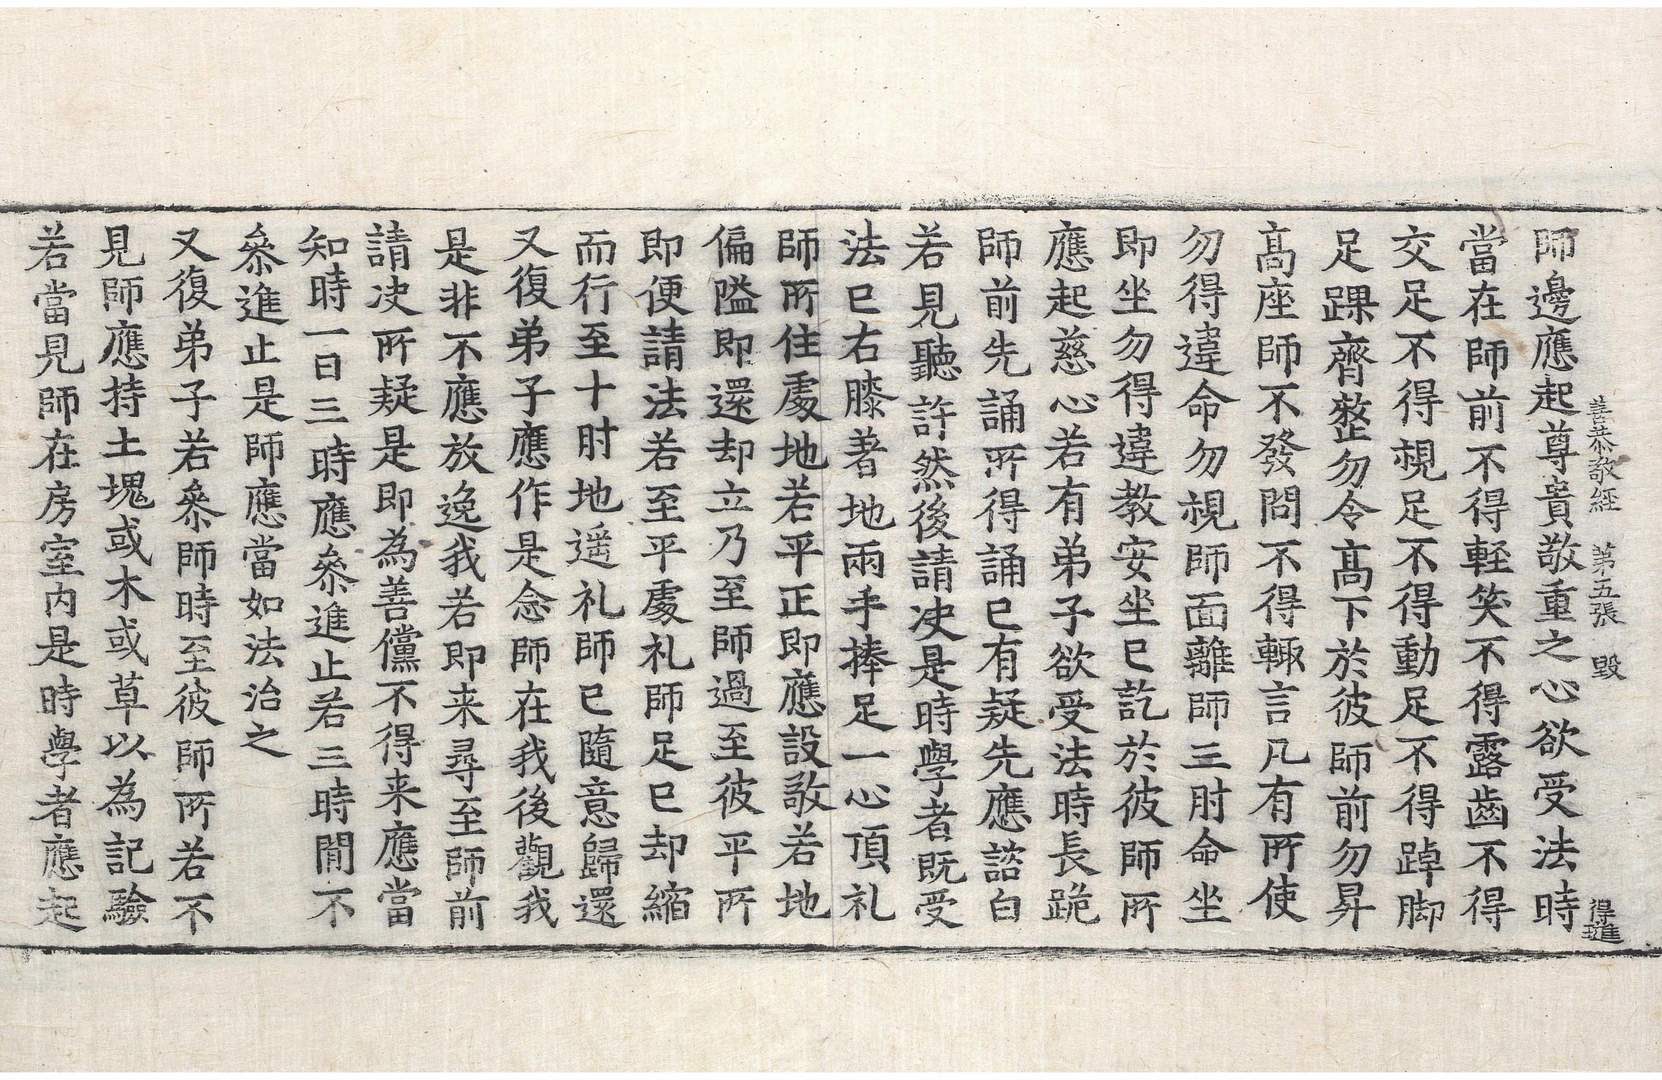 善恭敬經 第五張 毀 得進
師邊應起尊貴敬重之心欲受法時
當在師前不得輕笑不得露齒不得
交足不得視足不得動足不得踔脚
足踝齊整勿令髙下於彼師前勿昇
髙座師不發問不得輙言凡有所使
勿得違命勿視師面離師三肘命坐
即坐勿得違教安坐已訖於彼師所
應起慈心若有弟子欲受法時長跪
師前先誦所得誦已有疑先應諮白
若見聽許然後請决是時學者既受
法已右膝著地兩手捧足一心頂礼
師所住處地若平正即應設敬若地
偏隘即還却立乃至師過至彼平所
即便請法若至平處礼師足已却縮
而行至十肘地遥礼師已隨意歸還
又復弟子應作是念師在我後觀我
是非不應放逸我若即来尋至師前
請决所疑是即為善儻不得来應當
知時一日三時應叅進止若三時間不
叅進止是師應當如法治之
又復弟子若叅師時至彼師所若不
見師應持土塊或木或草以為記驗
若當見師在房室内是時學者應起